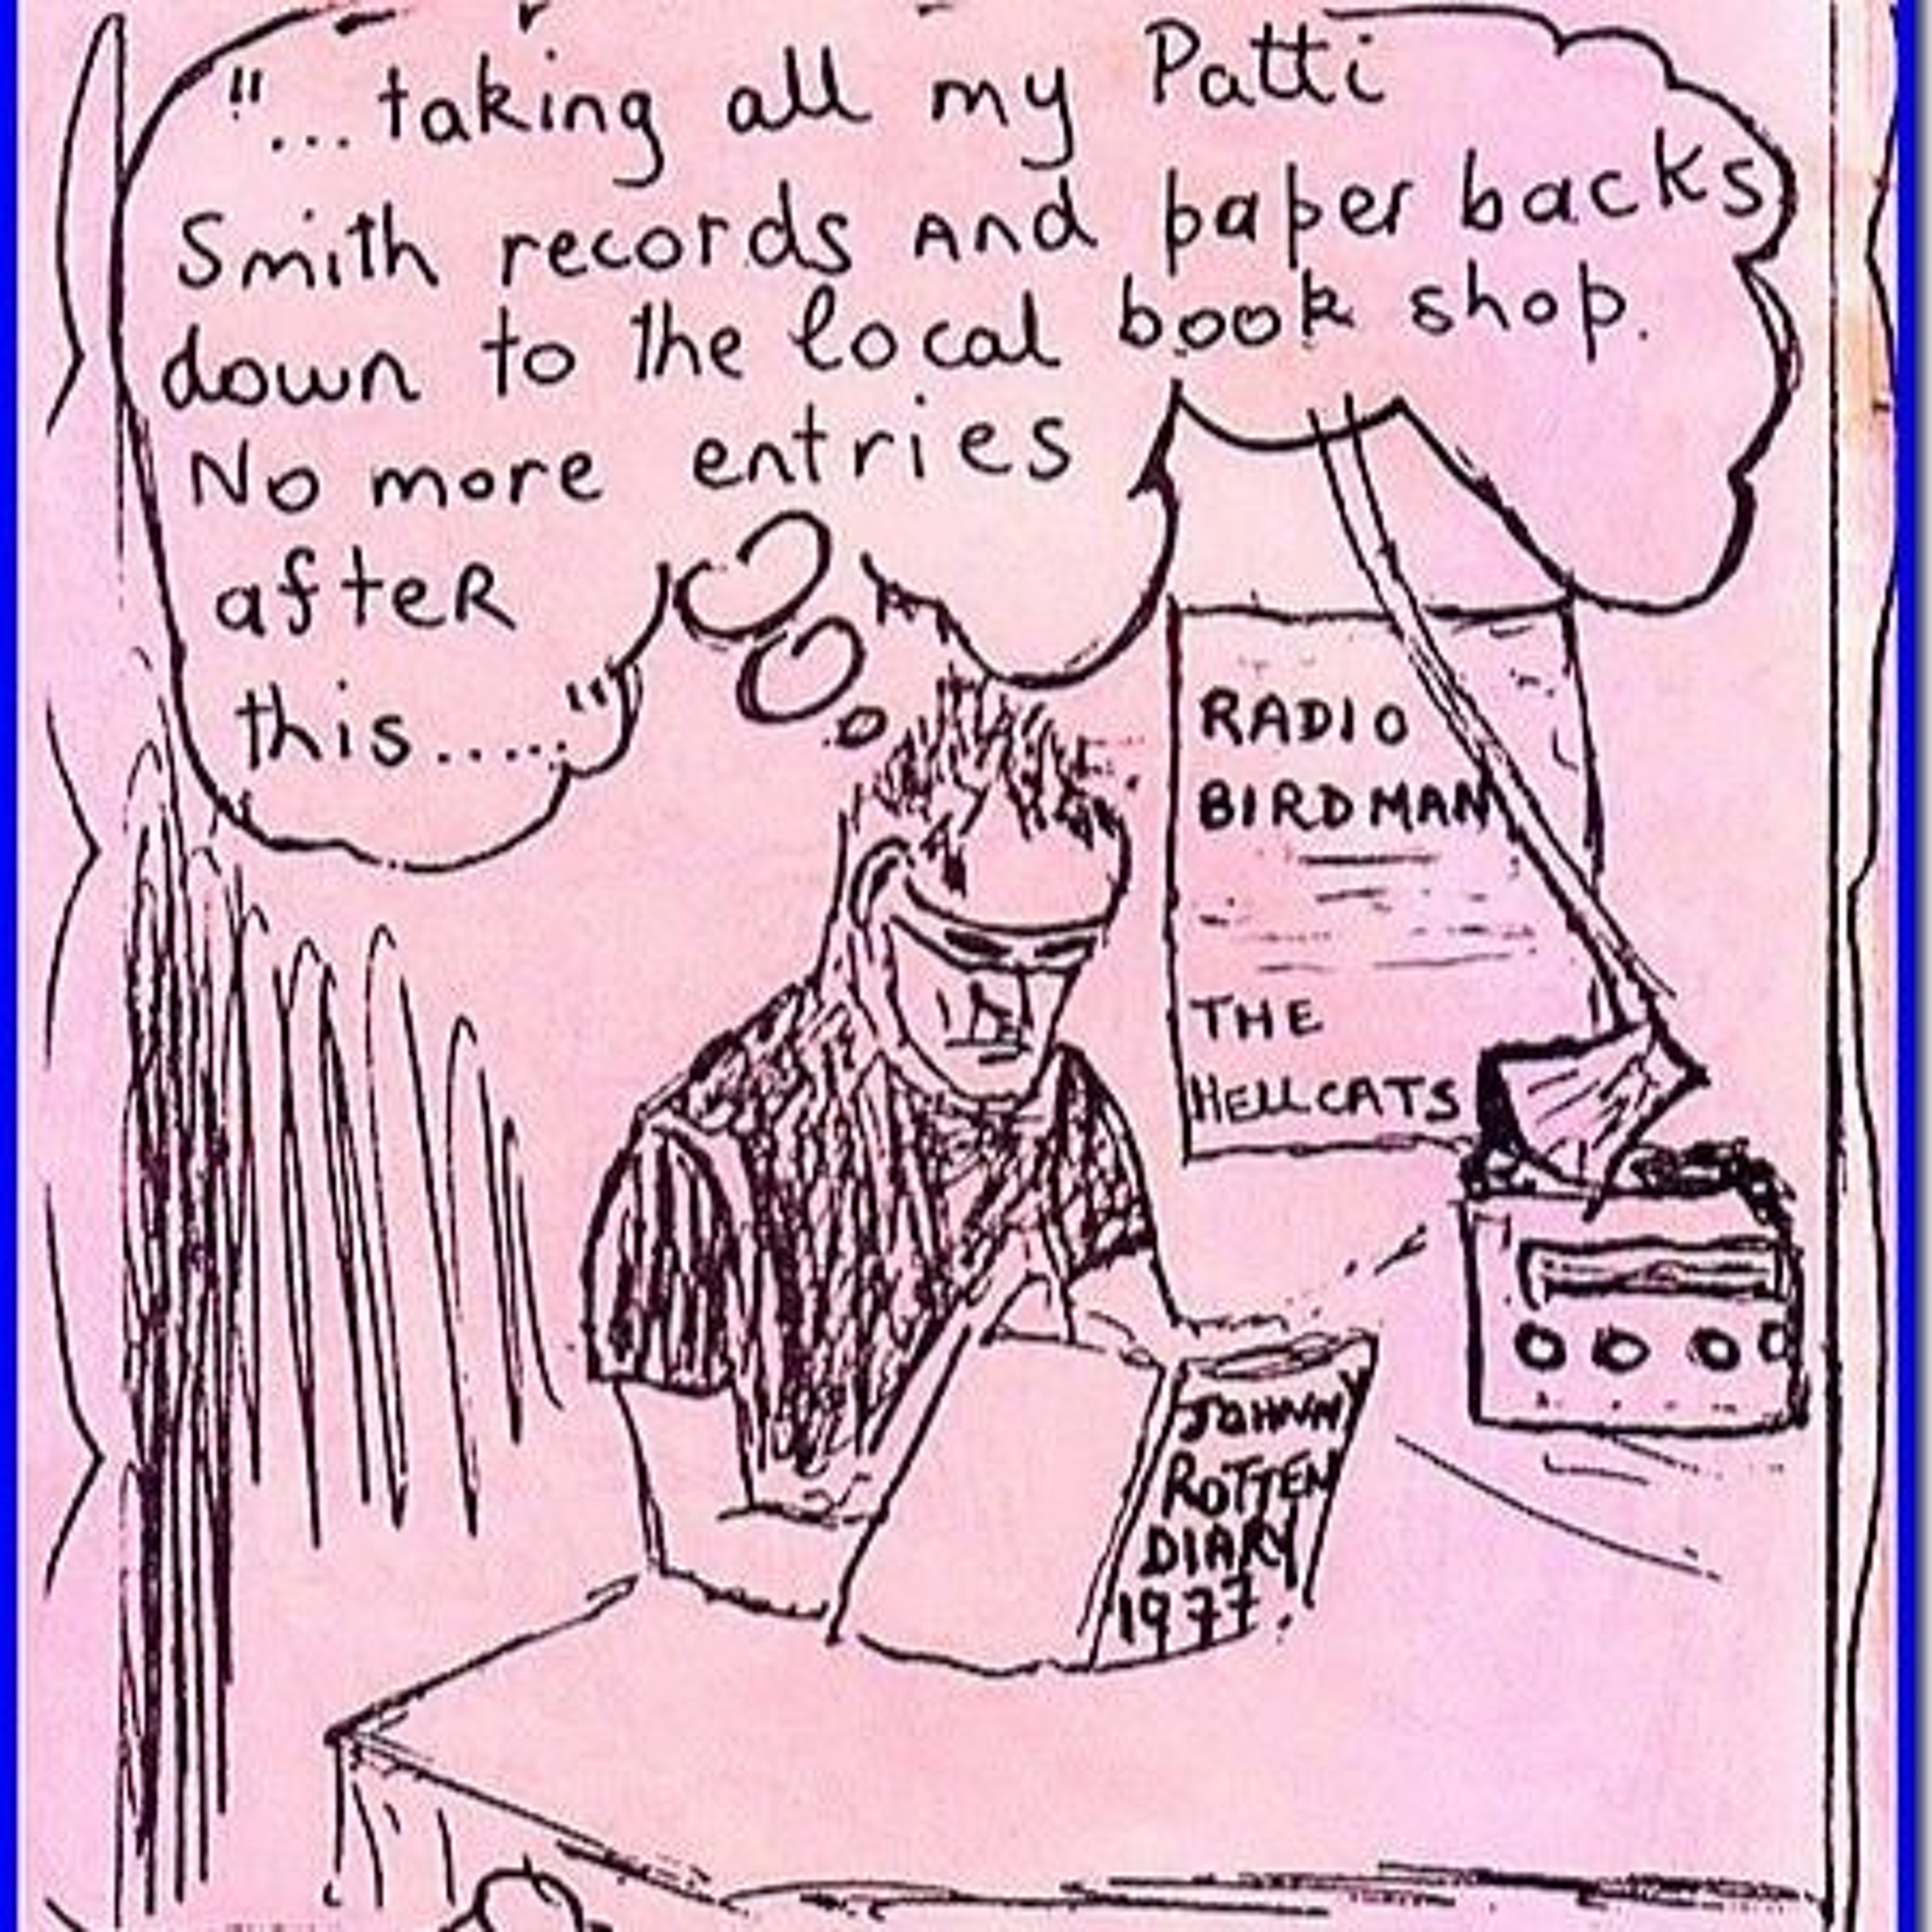 "...taking all my Patti
Smith records And paper backs
down to the local book shop.
No more entries
afteR
this....."
RADIO
BIRDMAN
THE
HELLCATS
JOHNNY
ROTTEN
DIARY
1977.